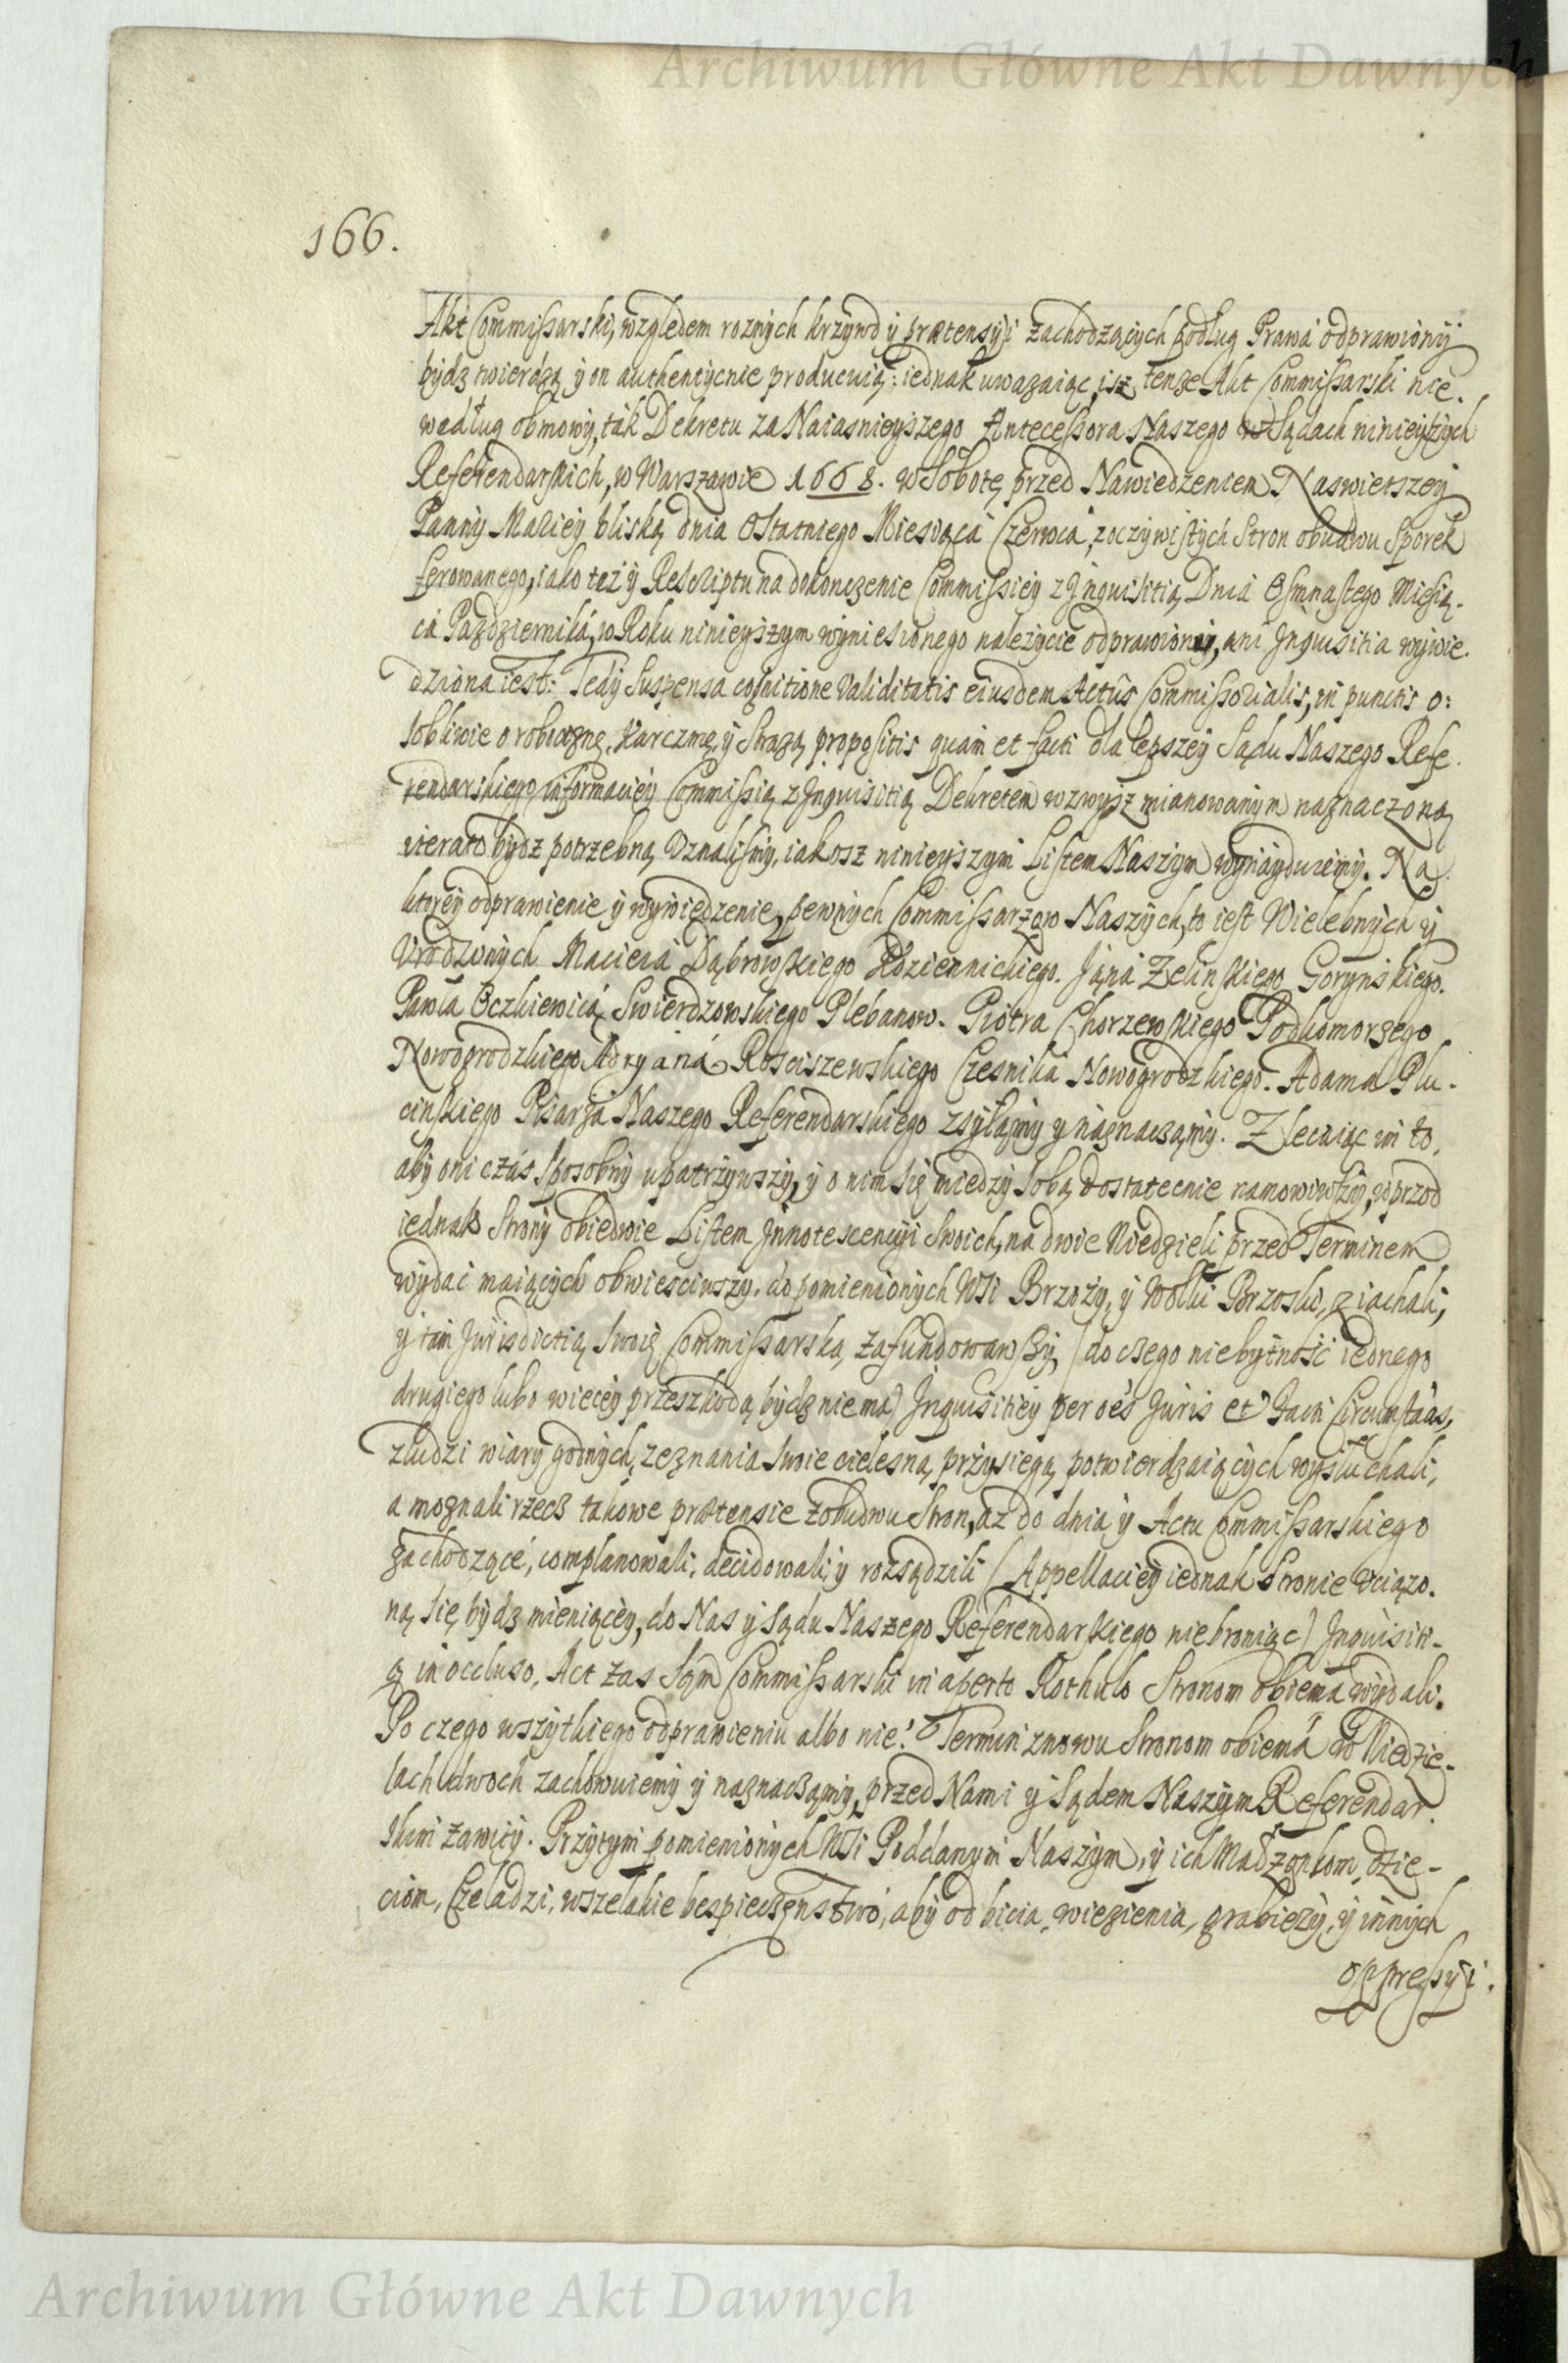 Archiwum Główne Akt Dawnych
166.
Akt Commissarski, względem roznych krzywd y prætensyi zachodzących podług Prawa odprawiony
bydz twierdzą y on authentycnie producuią: iednak uwazaiąc, isz tenze Akt Commissarski nie.
według obmowy, ták Dekretu za Naiasnieyszego Antecessora Naszego w Sądach ninieyszych
Referendarskich, w Warszawie 1668. w Sobotę przed Nawiedzeniem Naswietszey
Panny Maryey bliską dnia Ostatniego Miesiąca Czerwca, z oczywistych Stron obudwu Sporek
ferowanego, iako też y Rescriptu na dokonczenie Commissiey z Inquisitią Dnia Osmnastego Miesią-
ca Pazdziernika, w Roku ninieyszym wyniesionego należycie odprawiony, ani Inquisitia wywie.
dziona iest: Tedy Suspensa cognitione Validitatis eiusdem Actûs Commissorialis, in punctis o:
sobliwie o robociznę, Karczmę, y Strażą propositis quam et facti dla lepszey Sądu Naszego Refe.
rendarskiego informaciey Commissią z Inquisitią Dekretem wzwysz mianowanym naznaczoną
iterato bydz potrzebną Uznalismy, iakosz ninieyszym Listem Naszym wynayduiemy. Na
ktorey odprawienie y wywiedzenie, pewnych Commissarzow Naszych, to iest Wielebnych y
Vrodzonych Macieia Dąbrowskiego Koziennickiego. Jana Zelinskiego Gorynskiego.
Pawła Oczkiewica Swierdzowskiego Plebanow. Piotra Chorzewskiego Podkomorzego
Nowogrodzkiego, Adryana Rosciszewskiego Czesnika Nowogrodzkiego. Adama Plu-
cinskiego Pisarza Naszego Referendarskiego zsyłamy y naznaczamy. Zlecaiąc im to,
aby oni czás sposobny upatrzywszy, y o nim się miedzy sobą dostatecnie namowiwszy, wprzod
iednak Strony obiedwie Listem Innotescencyi swoich, na dwie Niedzieli przed Terminem
wydać maiących obwiesciwszy, do pomienionych Wsi Brzozy, y Wolki Brzoski, ziachali,
y tám Jurisdictią swoię Commissarską zafundowawszy, (do czego niebytność iednego
drugiego lubo wiecey przeszkodą bydz niema) Inquisitiey per oes Juris et Facti Circumstãas,
z ludzi wiary godnych, zeznania swoie cielesną przysiegą potwierdzaiących wysłuchali,
a moznali rzecz takowe prætensie z obudwu Stron, az do dnia y Actu Commissarskiego
zachodzące, complanowali, decidowali, y rozsądzili (Appellaciey iednak Stronie vciązo.
ną się bydz mieniącey, do Nas y Sądu Naszego Referendarskiego niebroniąc) Inquisiti-
ą in occluso, Act zas sąm Commissarski in aperto Rothulo Stronom obiema wydali.
Po czego wszytkiego odprawieniu albo nie: Termin znowu Stronom obiemá w Niedzie-
lach dwoch zachowuiemy y naznaczamy, przed Nami y Sądem Naszym Referendar.
skim zawity. Przytym pomienionych Wsi Poddanym Naszym, y ich Małżonkom, dzie-
ciom, Czeladzi, wszelakie bespieczenstwo, aby od bicia, wiezienia, grabieży, y innych
oppressyi.
Archiwum Główne Akt Dawnych